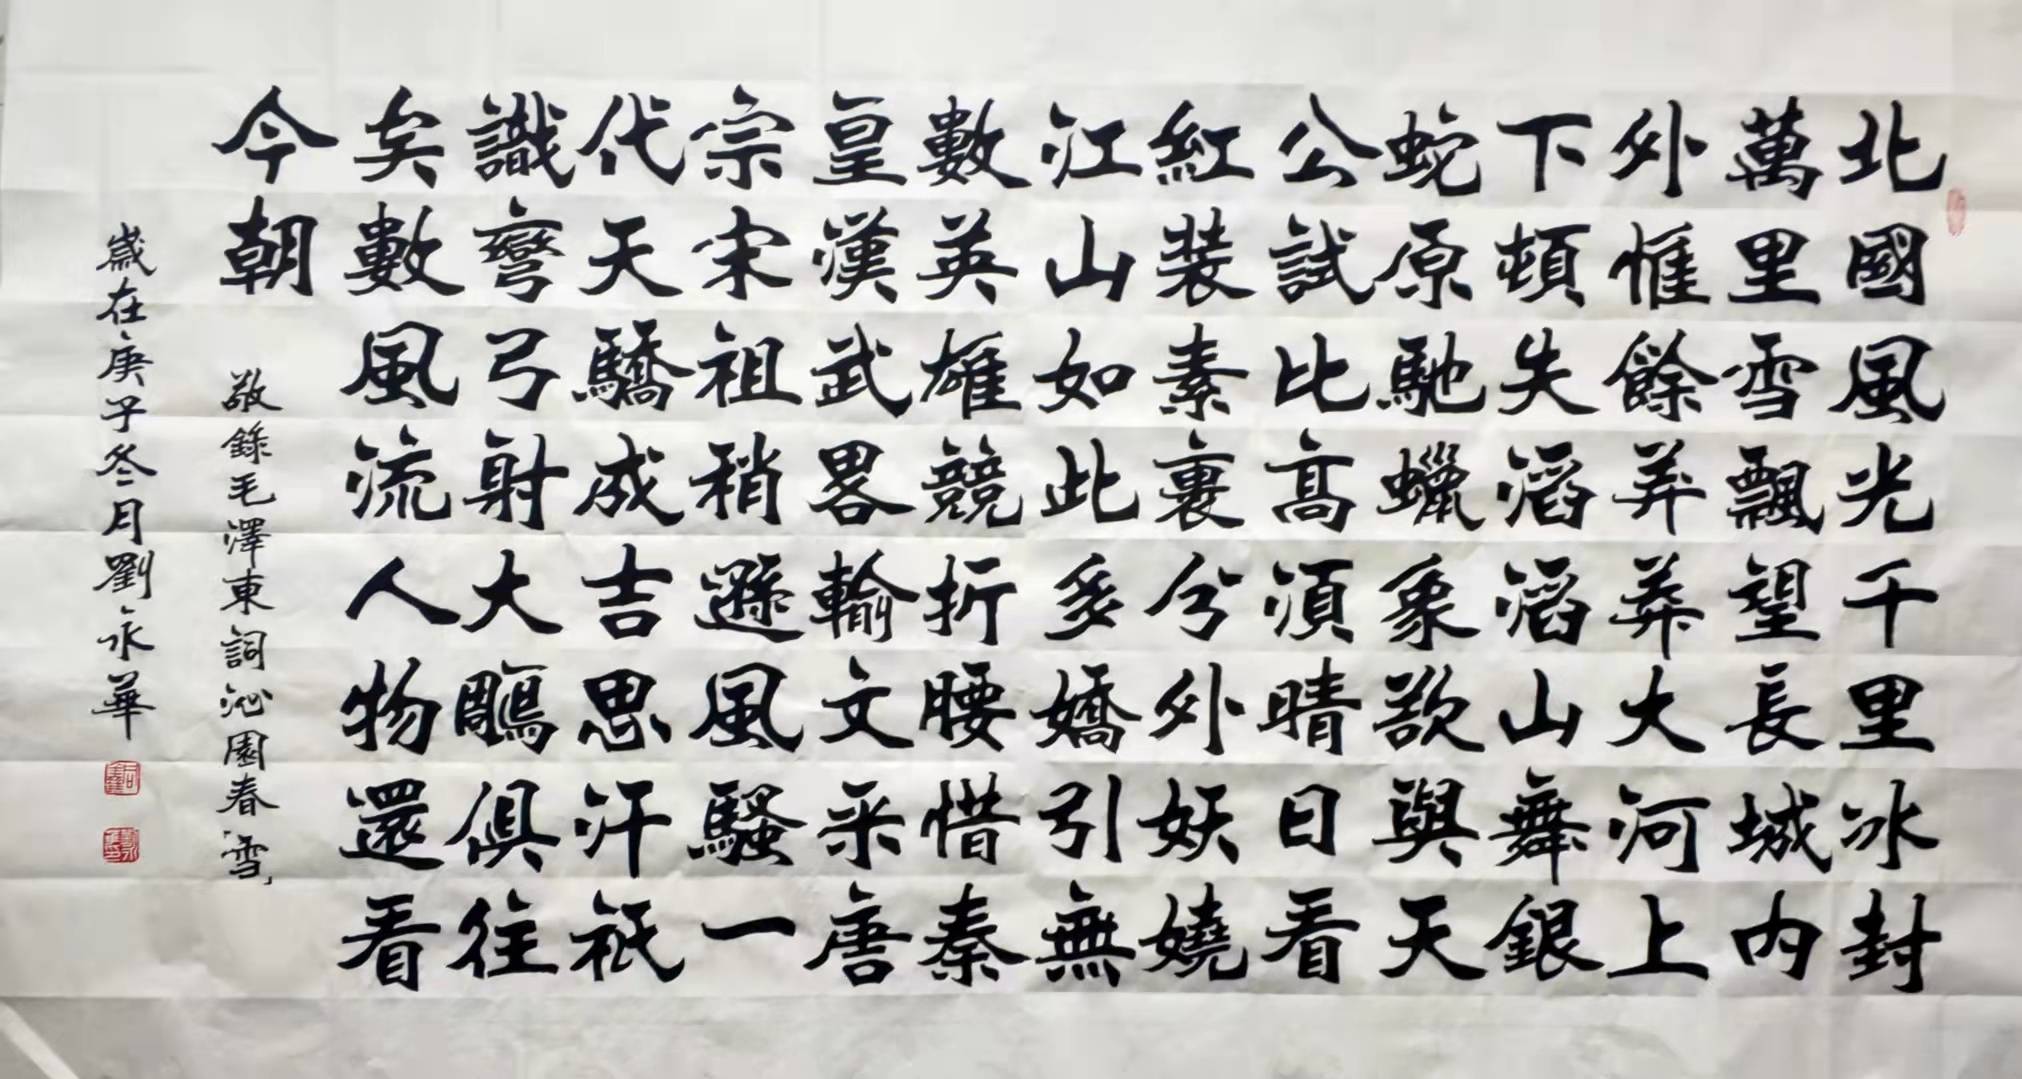 北國風光千里冰封
萬里雪飄望長城內
外惟餘莽莽大河上
下頓失滔滔山舞銀
蛇原馳蠟象欲與天
公試比高須晴日看
紅裝素裹分外妖嬈
江山如此多嬌引無
數英雄競折腰惜秦
皇漢武畧輸文采唐
宗宋祖稍遜風騷一
代天驕成吉思汗祇
識彎弓射大鵰俱往
矣數風流人物還看
今朝
敬錄毛澤東詞沁園春雪
歲在庚子冬月劉永華